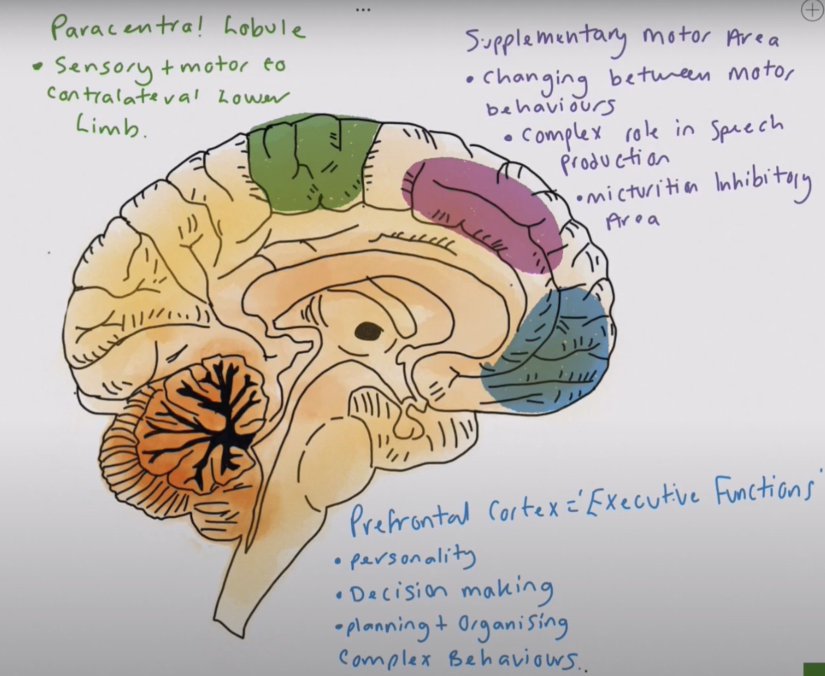 Paracentral Lobule
• Sensory + motor to
contralateral Lower
Limb.
Supplementary motor Area
• Changing between motor
behaviours
• complex role in Speech
Production
• micturition Inhibitory
Area
Prefrontal Cortex = 'Executive Functions'
• personality
• Decision making
• planning + Organising
Complex Behaviours..